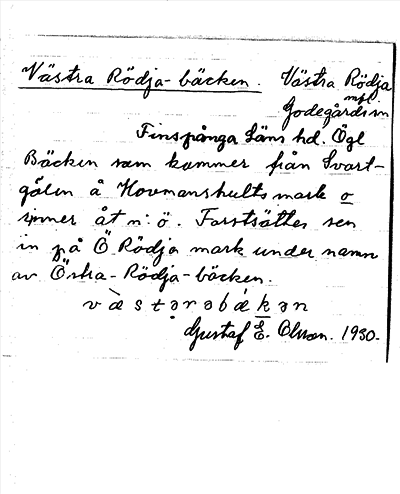 Västra Rödja-bäcken. Västra Rödja
mfl.
Godegårds sn
Finspånga Läns hd. Ögl
Bäcken som kommer från Svart-
gölen å Hovmanshults mark o
rinner åt n: ö. Forstsättes sen
in på Ö Rödja mark under namn
av Östra-Rödja-bäcken.
Gustaf E. Olsson. 1930.